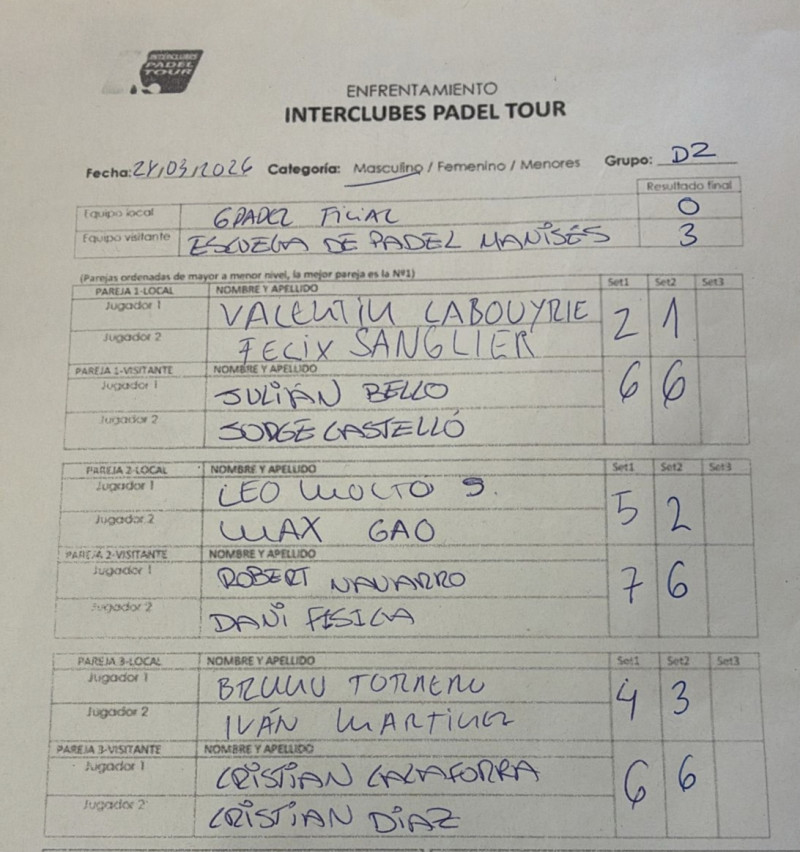 INTERCLUBES
PADEL
TOUR
ENFRENTAMIENTO
INTERCLUBES PADEL TOUR
Fecha: 28/03/2026 Categoría: Masculino / Femenino / Menores Grupo: D2
Resultado final
Equipo local GPADEL FILIAL 0
Equipo visitante ESCUELA DE PADEL MANISES 3
(Parejas ordenadas de mayor a menor nivel, la mejor pareja es la Nº1)
PAREJA 1-LOCAL NOMBRE Y APELLIDO Set1 Set2 Set3
Jugador 1 VALENTIN LABOUYRIE 2 1
Jugador 2 FELIX SANGLIER
PAREJA 1-VISITANTE NOMBRE Y APELLIDO 6 6
Jugador 1 JULIÁN BELLO
Jugador 2 JORGE CASTELLÓ
PAREJA 2-LOCAL NOMBRE Y APELLIDO Set1 Set2 Set3
Jugador 1 LEO MOLTO S. 5 2
Jugador 2 MAX GAO
PAREJA 2-VISITANTE NOMBRE Y APELLIDO 7 6
Jugador 1 ROBERT NAVARRO
Jugador 2 DANI
PAREJA 3-LOCAL NOMBRE Y APELLIDO Set1 Set2 Set3
Jugador 1 BRUNO TORRERO 4 3
Jugador 2 IVÁN MARTINEZ
PAREJA 3-VISITANTE NOMBRE Y APELLIDO 6 6
Jugador 1 CRISTIAN CALAFORRA
Jugador 2 CRISTIAN DIAZ